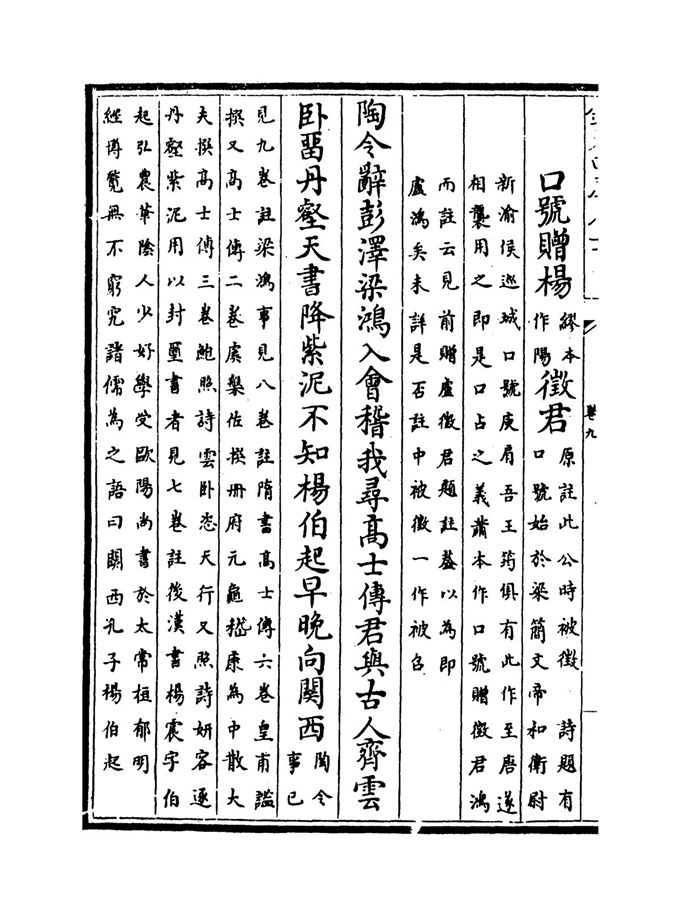 卷九
口號贈楊繆本作陽徵君原註此公時被徵 詩題有
口號始於梁簡文帝和衛尉
新渝侯巡城口號庾肩吾王筠俱有此作至唐遂
相襲用之即是口占之義蕭本作口號贈徵君鴻
而註云見前贈盧徵君題註葢以為即
盧鴻矣未詳是否註中被徵一作被召
陶令辭彭澤梁鴻入會稽我尋髙士傳君與古人齊雲
卧畱丹壑天書降紫泥不知楊伯起早晚向闗西陶令
事已
見九卷註梁鴻事見八卷註隋書髙士傳六卷皇甫謐
撰又髙士傳二卷虞槃佐撰册府元龜嵇康為中散大
夫撰髙士傳三卷鮑照詩雲卧恣天行又照詩妍容逐
丹壑紫泥用以封璽書者見七卷註後漢書楊震字伯
起弘農華隂人少好學受歐陽尚書於太常桓郁明
經博覽無不窮究諸儒為之語曰闗西孔子楊伯起